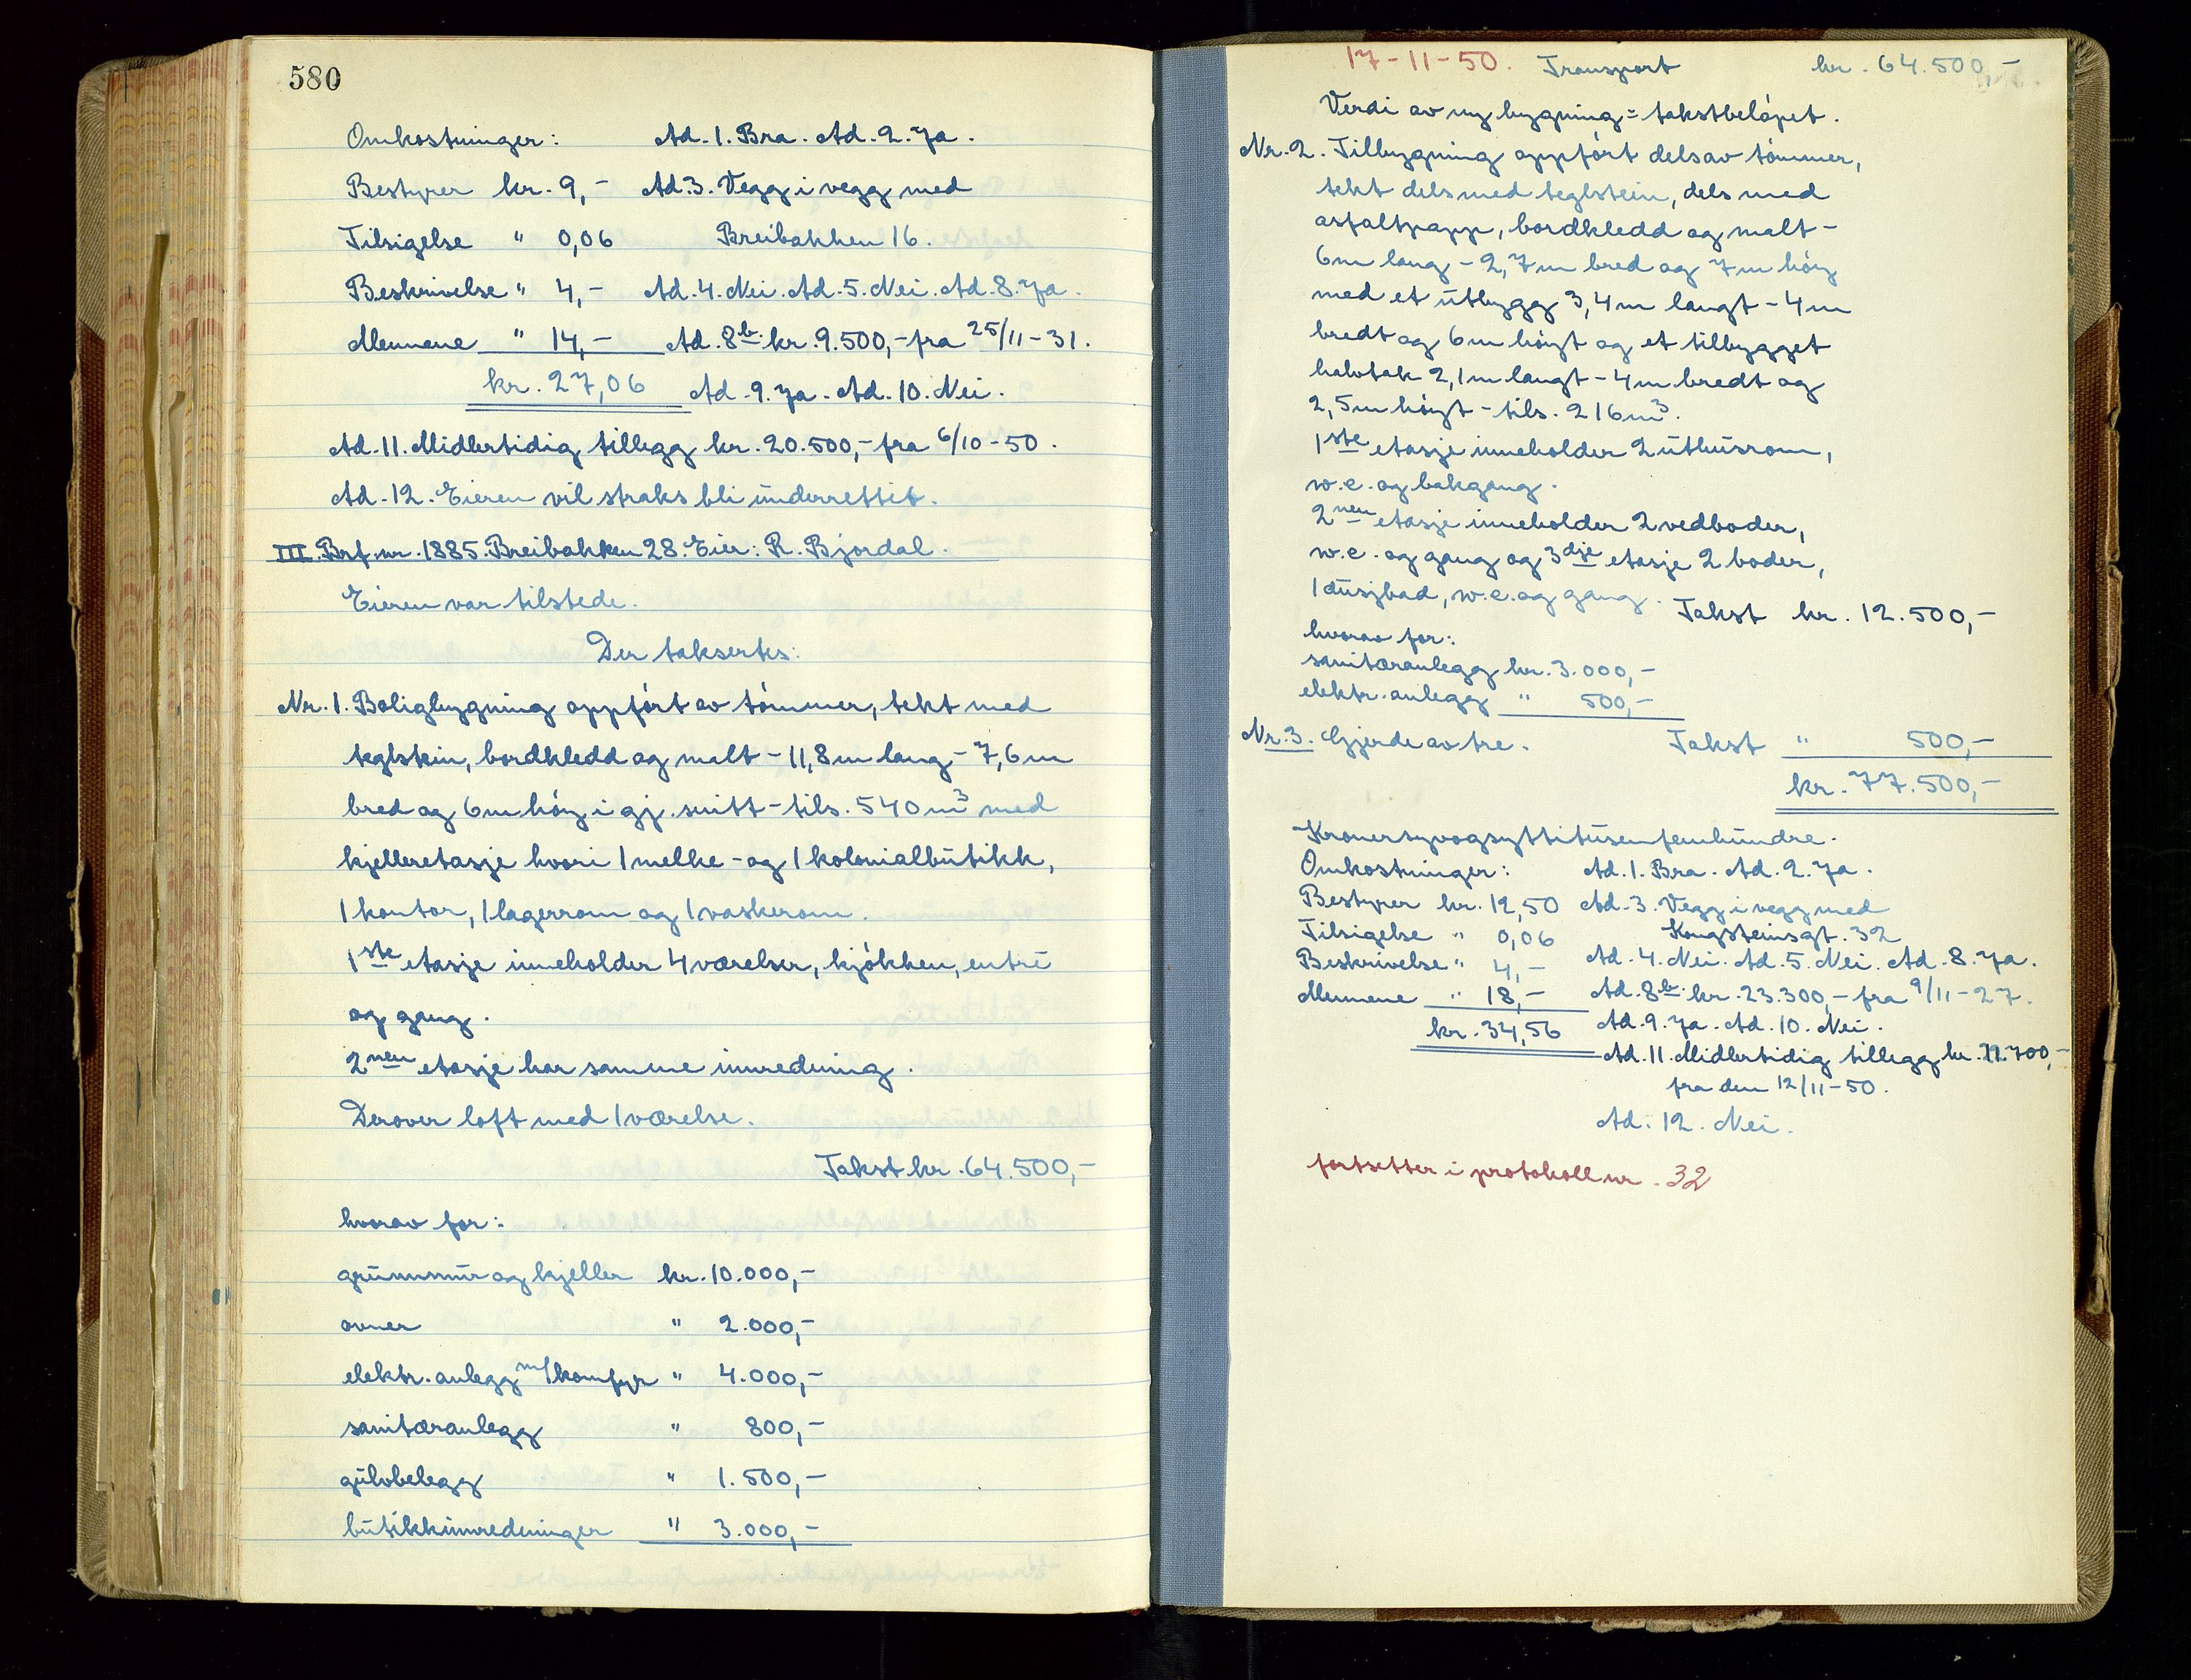 580
Omkostninger: Ad. 1. Bra. Ad. 2. Ja.
Bestyrer kr. 9,- Ad. 3. Vegg i vegg med
Tilsigelse " 0,06 Breibakken 16.
Beskrivelse " 4,- Ad. 4. Nei. Ad. 5. Nei. Ad. 8. Ja.
Mennene " 14,- Ad. 8b. kr. 9.500,- fra 25/11-31.
kr. 27,06 Ad. 9. Ja. Ad. 10. Nei.
Ad. 11. Midlertidig tillegg kr. 20.500,- fra 6/10-50.
Ad. 12. Eieren vil straks bli underrettet.
III. Brf. nr. 1885. Breibakken 28. Eier: R. Bjordal.
Eieren var tilstede.
Der taksertes:
Nr. 1. Boligbygning oppført av tømmer, tekt med
teglstein, bordkledd og malt - 11,8 m lang - 7,6 m
bred og 6 m høy i gj. snitt - tils. 540 m³ med
kjelleretasje hvori 1 melke- og 1 kolonialbutikk,
1 kontor, 1 lagerrom og 1 vaskerom.
1ste etasje inneholder 4 værelser, kjøkken, entré
og gang.
2nen etasje har samme innredning.
Derover loft med 1 værelse.
Takst kr. 64.500,-
hvorav for:
grunnmur og kjeller kr. 10.000,-
ovner " 2.000,-
elektr. anlegg m/komfyr " 4.000,-
sanitæranlegg " 800,-
gulvbelegg " 1.500,-
butikkinnredninger " 3.000,-
17-11-50. Transport kr. 64.500,-
Verdi av ny bygning = takstbeløpet.
Nr. 2. Tilbygning oppført dels av tømmer,
tekt dels med teglstein, dels med
asfaltpapp, bordkledd og malt -
6 m lang - 2,7 m bred og 7 m høy
med et utbygg 3,4 m langt - 4 m
bredt og 6 m høyt og et tilbygget
halvtak 2,1 m langt - 4 m bredt og
2,5 m høyt - tils. 216 m³.
1ste etasje inneholder 2 uthusrom,
w.c. og bakgang.
2nen etasje inneholder 2 vedboder,
w.c. og gang og 3dje etasje 2 boder,
1 dusjbad, w.c. og gang. Takst kr. 12.500,-
hvorav for:
sanitæranlegg kr. 3.000,-
elektr. anlegg " 500,-
Nr. 3. Gjerde av tre. Takst " 500,-
kr. 77.500,-
Kronersyvogsyttitusenfemhundre.
Omkostninger: Ad. 1. Bra. Ad. 2. Ja.
Bestyrer kr. 12,50 Ad. 3. Vegg i vegg med
Tilsigelse " 0,06 Kongsteinsgt. 32
Beskrivelse " 4,- Ad. 4. Nei. Ad. 5. Nei. Ad. 8. Ja.
Mennene " 18,- Ad. 8b. kr. 23.300,- fra 9/11-27.
kr. 34,56 Ad. 9. Ja. Ad. 10. Nei.
Ad. 11. Midlertidig tillegg kr.
fra den 12/11-50.
Ad. 12. Nei.
fortsetter i protokoll nr. 32